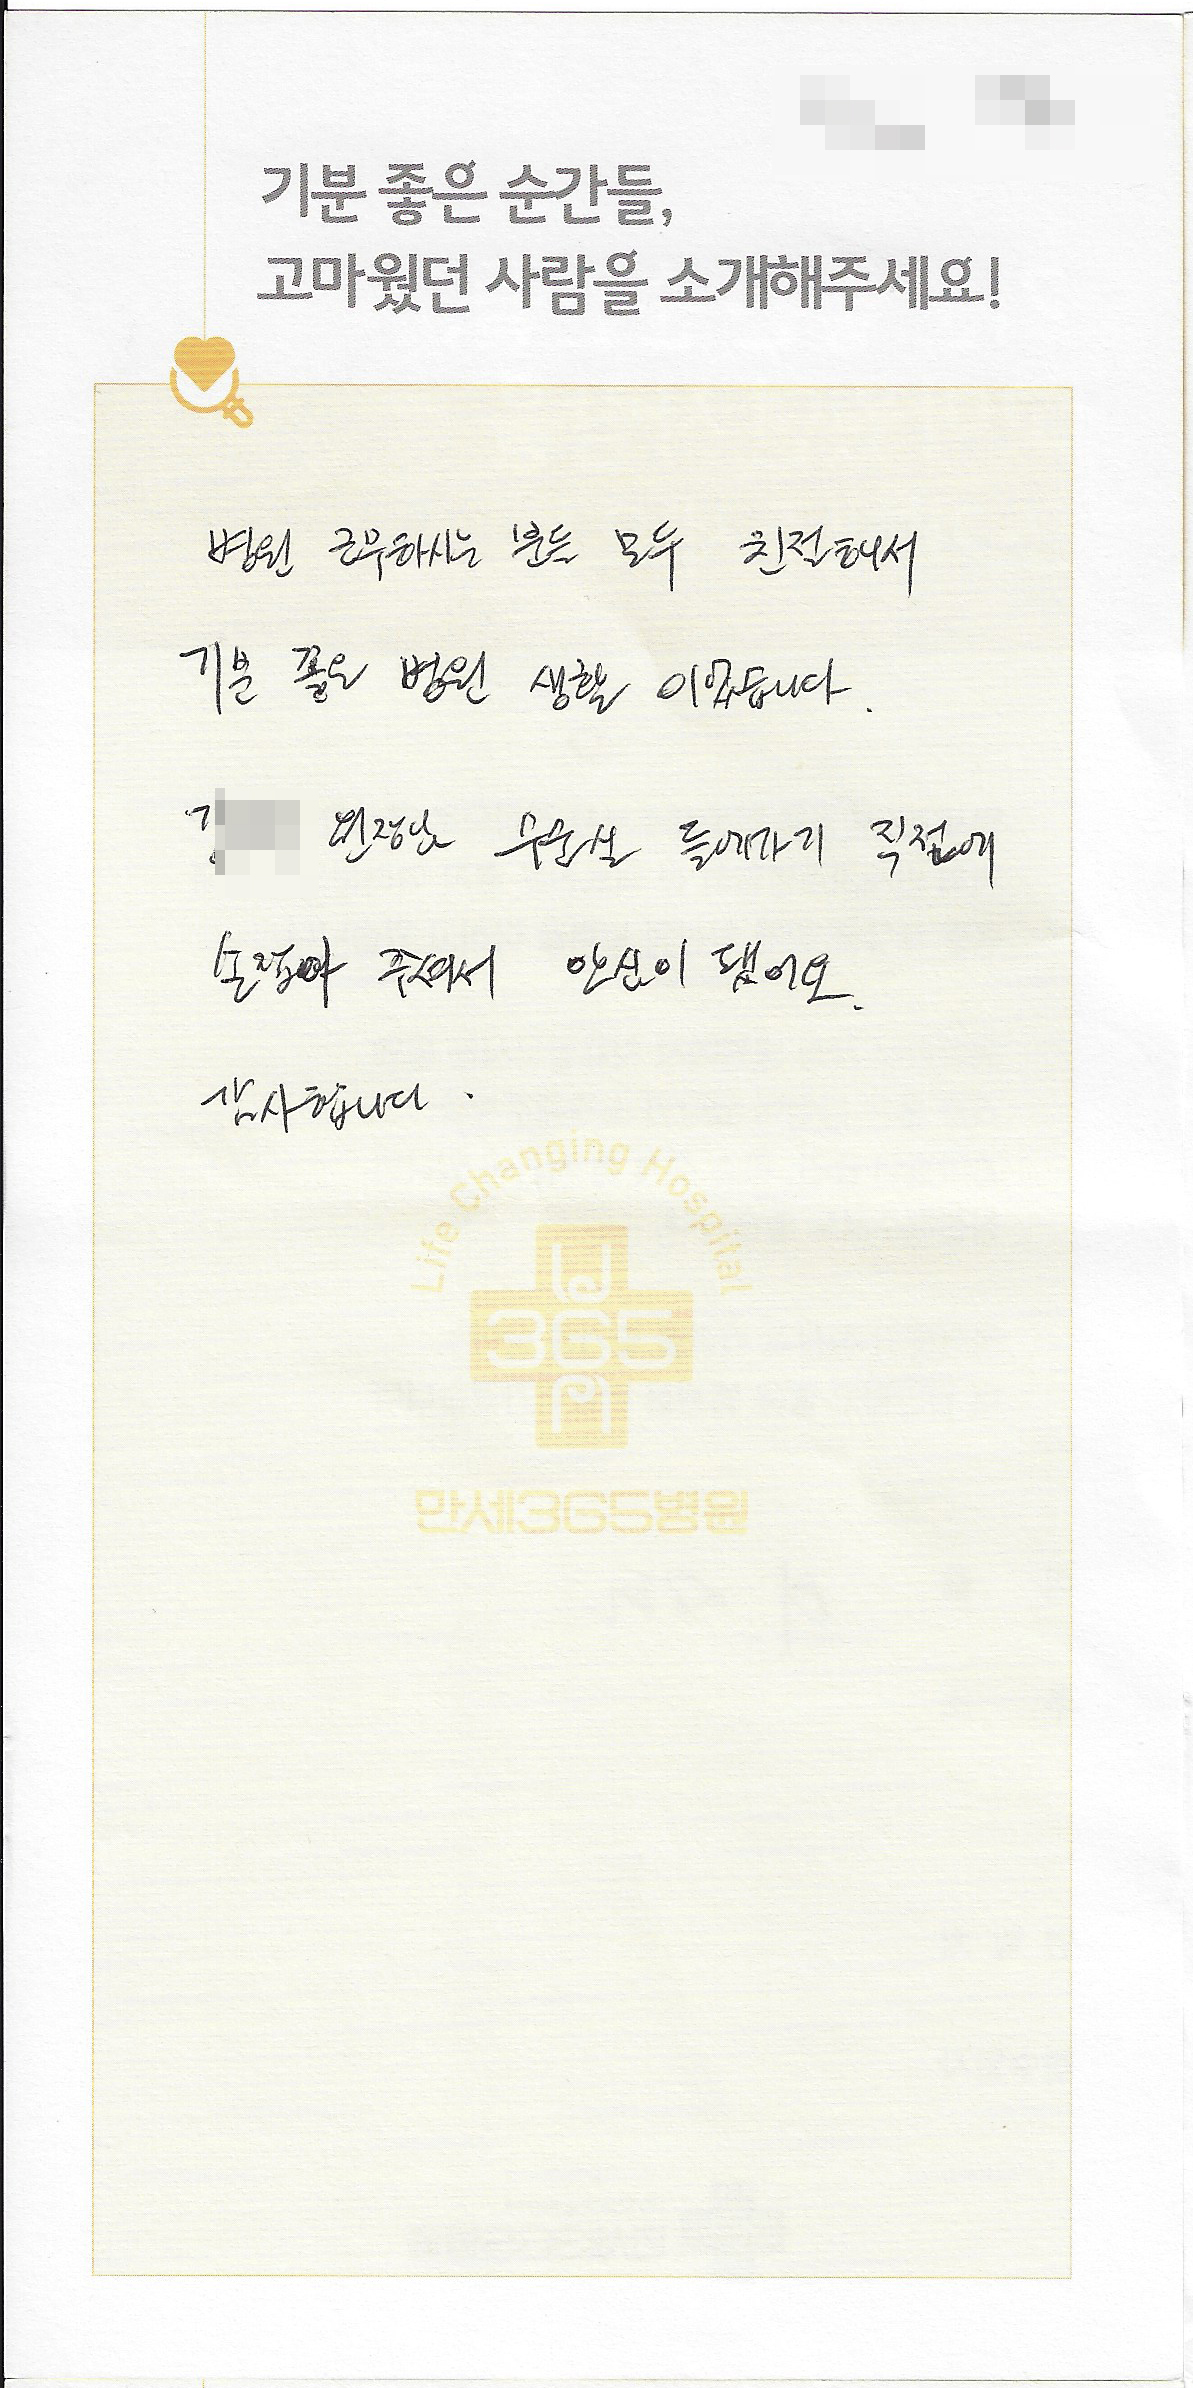 기분 좋은 순간들,
고마웠던 사람을 소개해주세요!
병원 근무하시는 분들 모두 친절해서
기분 좋은 병원 생활 이었습니다.
원장님 수술실 들어가기 직전에
손잡아 주셔서 안심이 됐어요.
감사합니다.
Life Changing Hospital
365
만세365병원